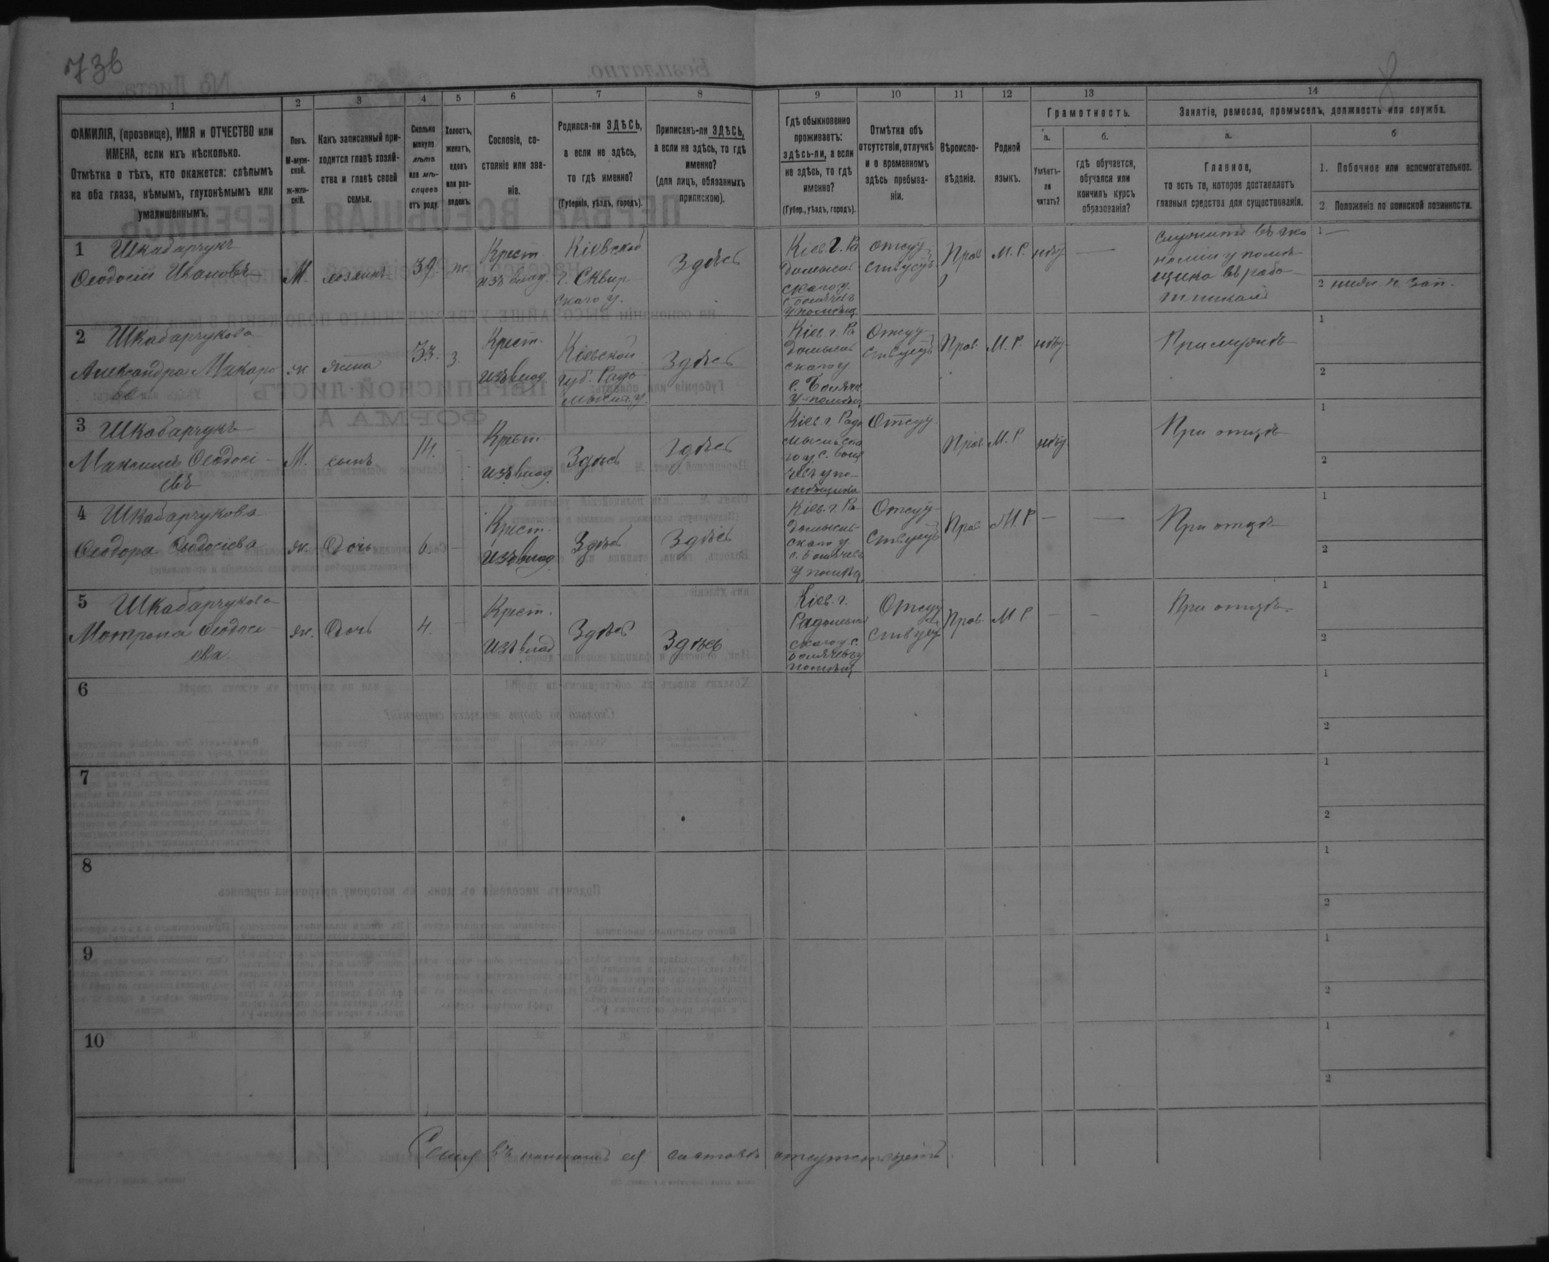 736
1
2
3
4
5
6
7
8
9
10
11
12
13
14
ФАМИЛІЯ, (прозвище), ИМЯ и ОТЧЕСТВО или
ИМЕНА, если ихъ нѣсколько.
Отмѣтка о тѣхъ, кто окажется: слѣпымъ
на оба глаза, нѣмымъ, глухонѣмымъ или
умалишеннымъ.
Полъ.
М-муж-
ской.
ж-жен-
скій.
Какъ записанный при-
ходится главѣ хозяй-
ства и главѣ своей
семьи.
Сколько
минуло
лѣтъ
или мѣ-
сяцевъ
отъ роду.
Холостъ,
женатъ,
вдовъ
или раз-
веденъ.
Сословіе, со-
стояніе или зва-
ніе.
Родился-ли ЗДѢСЬ,
а если не здѣсь,
то гдѣ именно?
(Губернія, уѣздъ, городъ).
Приписанъ-ли ЗДѢСЬ,
а если не здѣсь, то гдѣ
именно?
(для лицъ, обязанныхъ
припискою).
Гдѣ обыкновенно
проживаетъ:
здѣсь-ли, а если
не здѣсь, то гдѣ
именно?
(Губер., уѣздъ, городъ).
Отмѣтка объ
отсутствіи, отлучкѣ
и о временномъ
здѣсь пребыва-
ніи.
Вѣроиспо-
вѣданіе.
Родной
языкъ.
Грамотность.
а.
б.
Умѣетъ-
ли
читать?
гдѣ обучается,
обучался или
кончилъ курсъ
образованія?
Занятія, ремесло, промыселъ, должность или служба.
а.
б
Главное,
то есть то, которое доставляетъ
главныя средства для существованія.
1. Побочное или вспомогательное.
2. Положеніе по воинской повинности.
1
Шкабарчукъ
Ѳеодосій Ивановъ
М.
хозяинъ
39
ж.
Крест
изъ влад.
Кіевской
г. Сквир
скаго у.
Здѣсь
Кіев. г. Ра
домысль
скаго у.
отсут
ствуетъ
Прав
М. Р.
нѣтъ
—
служитъ въ эко
номіи у помѣ
щика
1 —
2
2
Шкабарчукова
Александра Макаро
ва
ж
жена
33.
З.
Крест.
изъ влад
Кіевской
губ. Радо
мысл у
Здѣсь
Кіев. г. Ра
домысль
скаго у
Отсут
ствуетъ
Прав
М. Р
нѣтъ
При мужѣ
1
2
3
Шкабарчукъ
Максимъ Ѳеодосі-
евъ
М.
сынъ
14.
-
Крест.
изъ влад.
Здѣсь
Здѣсь
Кіев. г. Радо
мысльска
Отсут
Прав
М. Р
нѣт
При отцѣ
1
2
4
Шкабарчукова
Ѳеодора Ѳеодосіева
ж.
Дочь
6.
-
Крест.
изъ влад
Здѣсь
Здѣсь
Кіев. г. Ра
домысль-
скаго у
Отсут
ствуетъ
Прав
М. Р
—
—
При отцѣ
1
2
5
Шкабарчукова
Матрона Ѳеодосі-
ева.
ж.
Дочь
4.
-
Крест.
изъ влад
Здѣсь
Здѣсь
Кіев. г.
Радомысль
скаго у. с.
Отсут
ствует
Прав
М. Р
-
-
При отцѣ
1
2
6
1
2
7
1
2
8
1
2
9
1
2
10
1
2
Семья въ полномъ ея составѣ отсутствуетъ